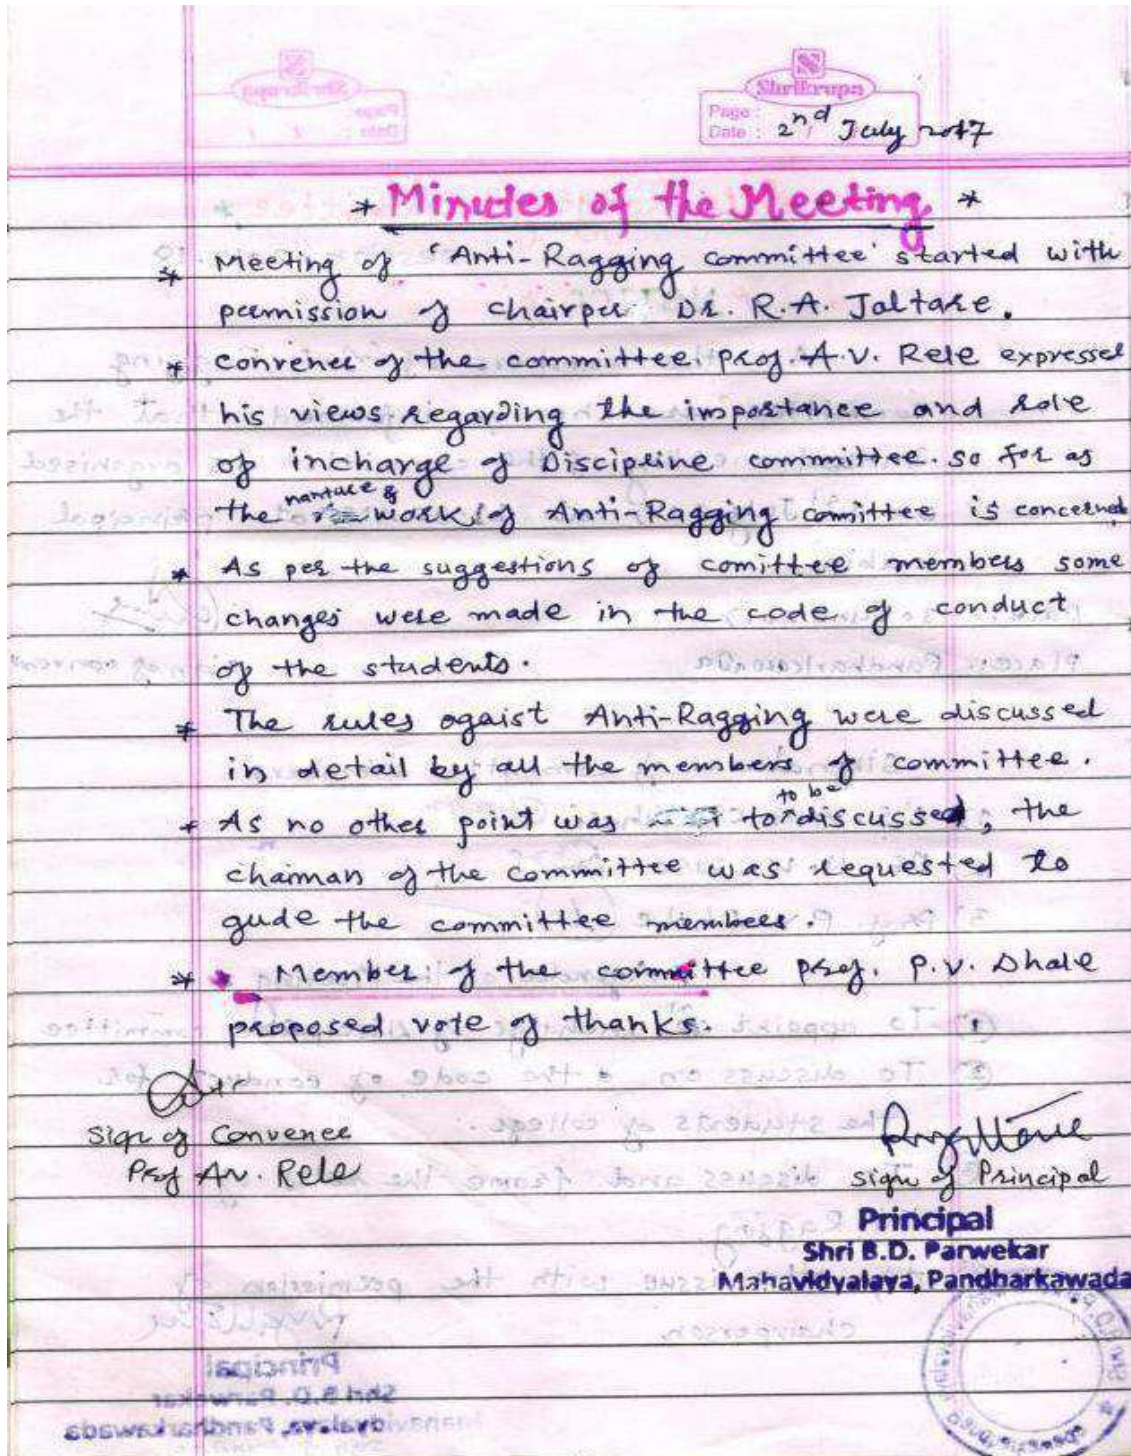 Shrikrupa
Page :
Date : 2nd July 2017
* Minutes of the Meeting *
* Meeting of 'Anti-Ragging committee' started with
permission of chairper Dr. R.A. Jaltare.
* convener of the committee prof. A.V. Rele expressed
his views regarding the importance and role
of incharge of Discipline committee. so for as
nanture &
the work of Anti-Ragging comittee is concerned
* As per the suggestions of comittee members some
changes were made in the code of conduct
of the students.
* The rules ogaist Anti-Ragging were discussed
in detail by all the members of committee.
to be
* As no other point was to discussed, the
chaiman of the committee was requested to
gude the committee members.
* Member of the committee prof. P.V. Dhale
proposed vote of thanks.
Sign of Convener
Prof A.V. Rele
Sign of Principal
Principal
Shri B.D. Parwekar
Mahavidyalaya, Pandharkawada